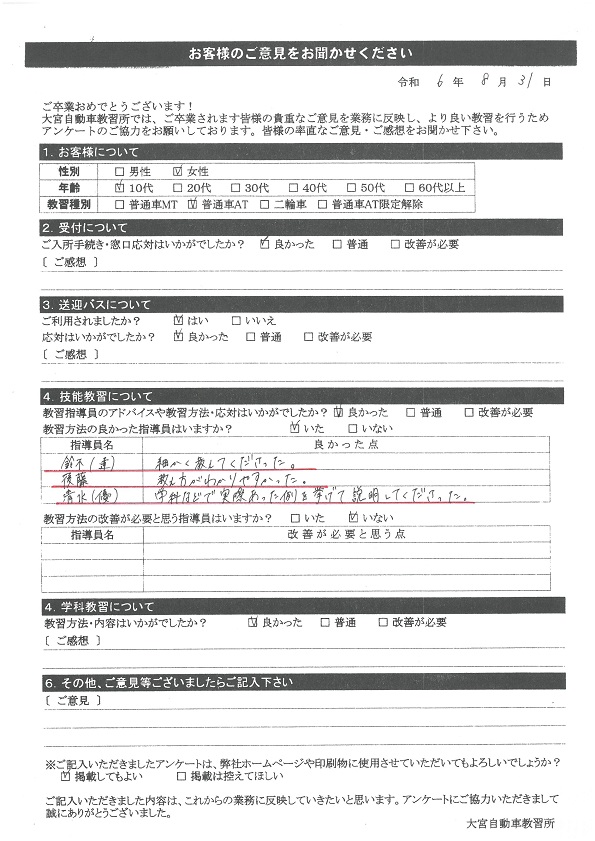 お客様のご意見をお聞かせください
令和 6 年 8 月 31 日
ご卒業おめでとうございます！
大宮自動車教習所では、ご卒業されます皆様の貴重なご意見を業務に反映し、より良い教習を行うため
アンケートのご協力をお願いしております。皆様の率直なご意見・ご感想をお聞かせ下さい。
1. お客様について
性別 □ 男性 ☑ 女性
年齢 ☑ 10代 □ 20代 □ 30代 □ 40代 □ 50代 □ 60代以上
教習種別 □ 普通車MT ☑ 普通車AT □ 二輪車 □ 普通車AT限定解除
2. 受付について
ご入所手続き・窓口応対はいかがでしたか？ ☑ 良かった □ 普通 □ 改善が必要
〔 ご感想 〕
3. 送迎バスについて
ご利用されましたか？ ☑ はい □ いいえ
応対はいかがでしたか？ ☑ 良かった □ 普通 □ 改善が必要
〔 ご感想 〕
4. 技能教習について
教習指導員のアドバイスや教習方法・応対はいかがでしたか？ ☑ 良かった □ 普通 □ 改善が必要
教習方法の良かった指導員はいますか？ ☑ いた □ いない
指導員名 良かった点
鈴木(重) 細かく教えてくださった。
後藤 教え方がわかりやすかった。
清水(優) 学科などで実際あった例を挙げて説明してくださった。
教習方法の改善が必要と思う指導員はいますか？ □ いた ☑ いない
指導員名 改善が必要と思う点
4. 学科教習について
教習方法・内容はいかがでしたか？ ☑ 良かった □ 普通 □ 改善が必要
〔 ご感想 〕
6. その他、ご意見等ございましたらご記入下さい
〔 ご意見 〕
※ご記入いただきましたアンケートは、弊社ホームページや印刷物に使用させていただいてもよろしいでしょうか？
☑ 掲載してもよい □ 掲載は控えてほしい
ご記入いただきました内容は、これからの業務に反映していきたいと思います。アンケートにご協力いただきまして
誠にありがとうございました。
大宮自動車教習所